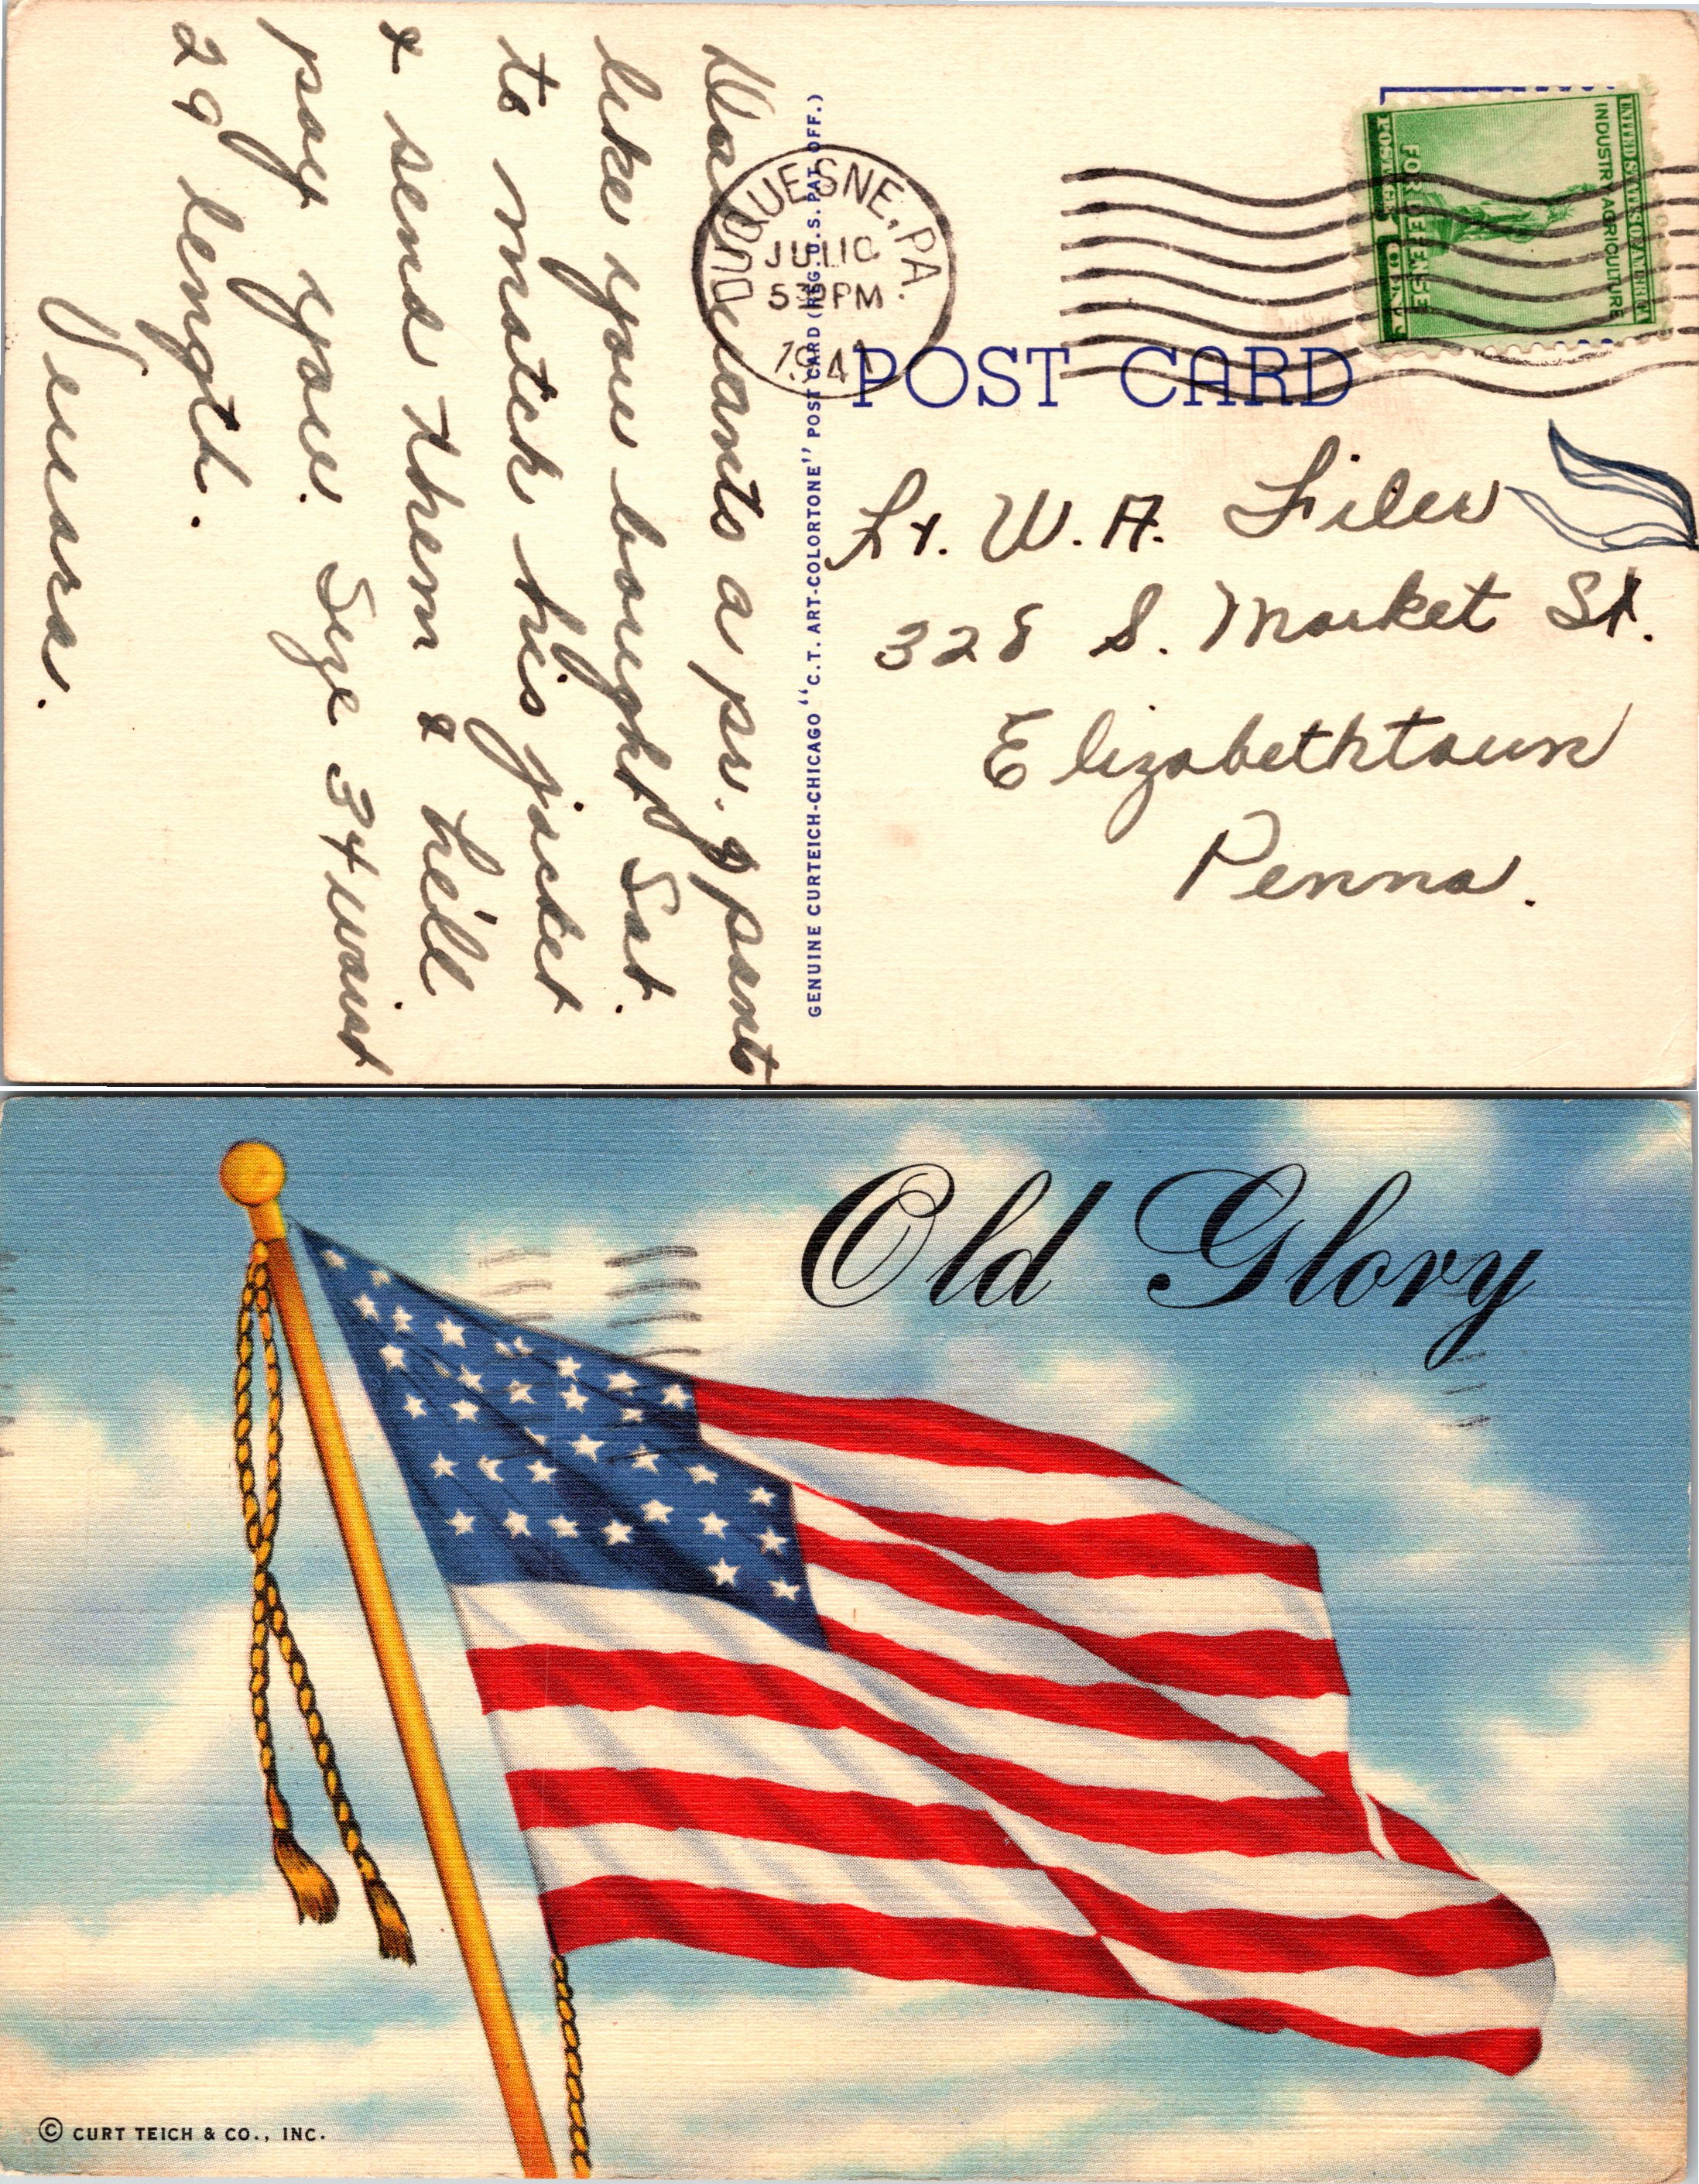 Walt wants a pr. of pants
like you bought Sat.
to match his jacket
& send them & he'll
pay you. Size 34 waist
29 length.
Verna.
GENUINE CURTEICH-CHICAGO "C.T. ART-COLORTONE" POST CARD (REG. U.S. PAT. OFF.)
DUQUESNE, PA.
JUL 10
5 PM
1941
UNITED STATES OF AMERICA
INDUSTRY AGRICULTURE
FOR DEFENSE
POSTAGE 1 CENT
POST CARD
Lt. W. A. Filer
328 S. Market St.
Elizabethtown
Penna.
Old Glory
© CURT TEICH & CO., INC.